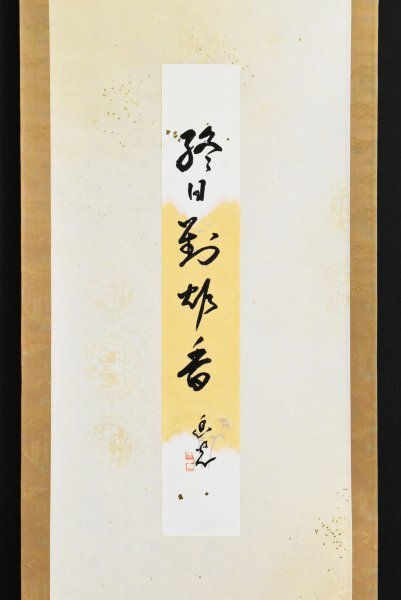 終日對炉香